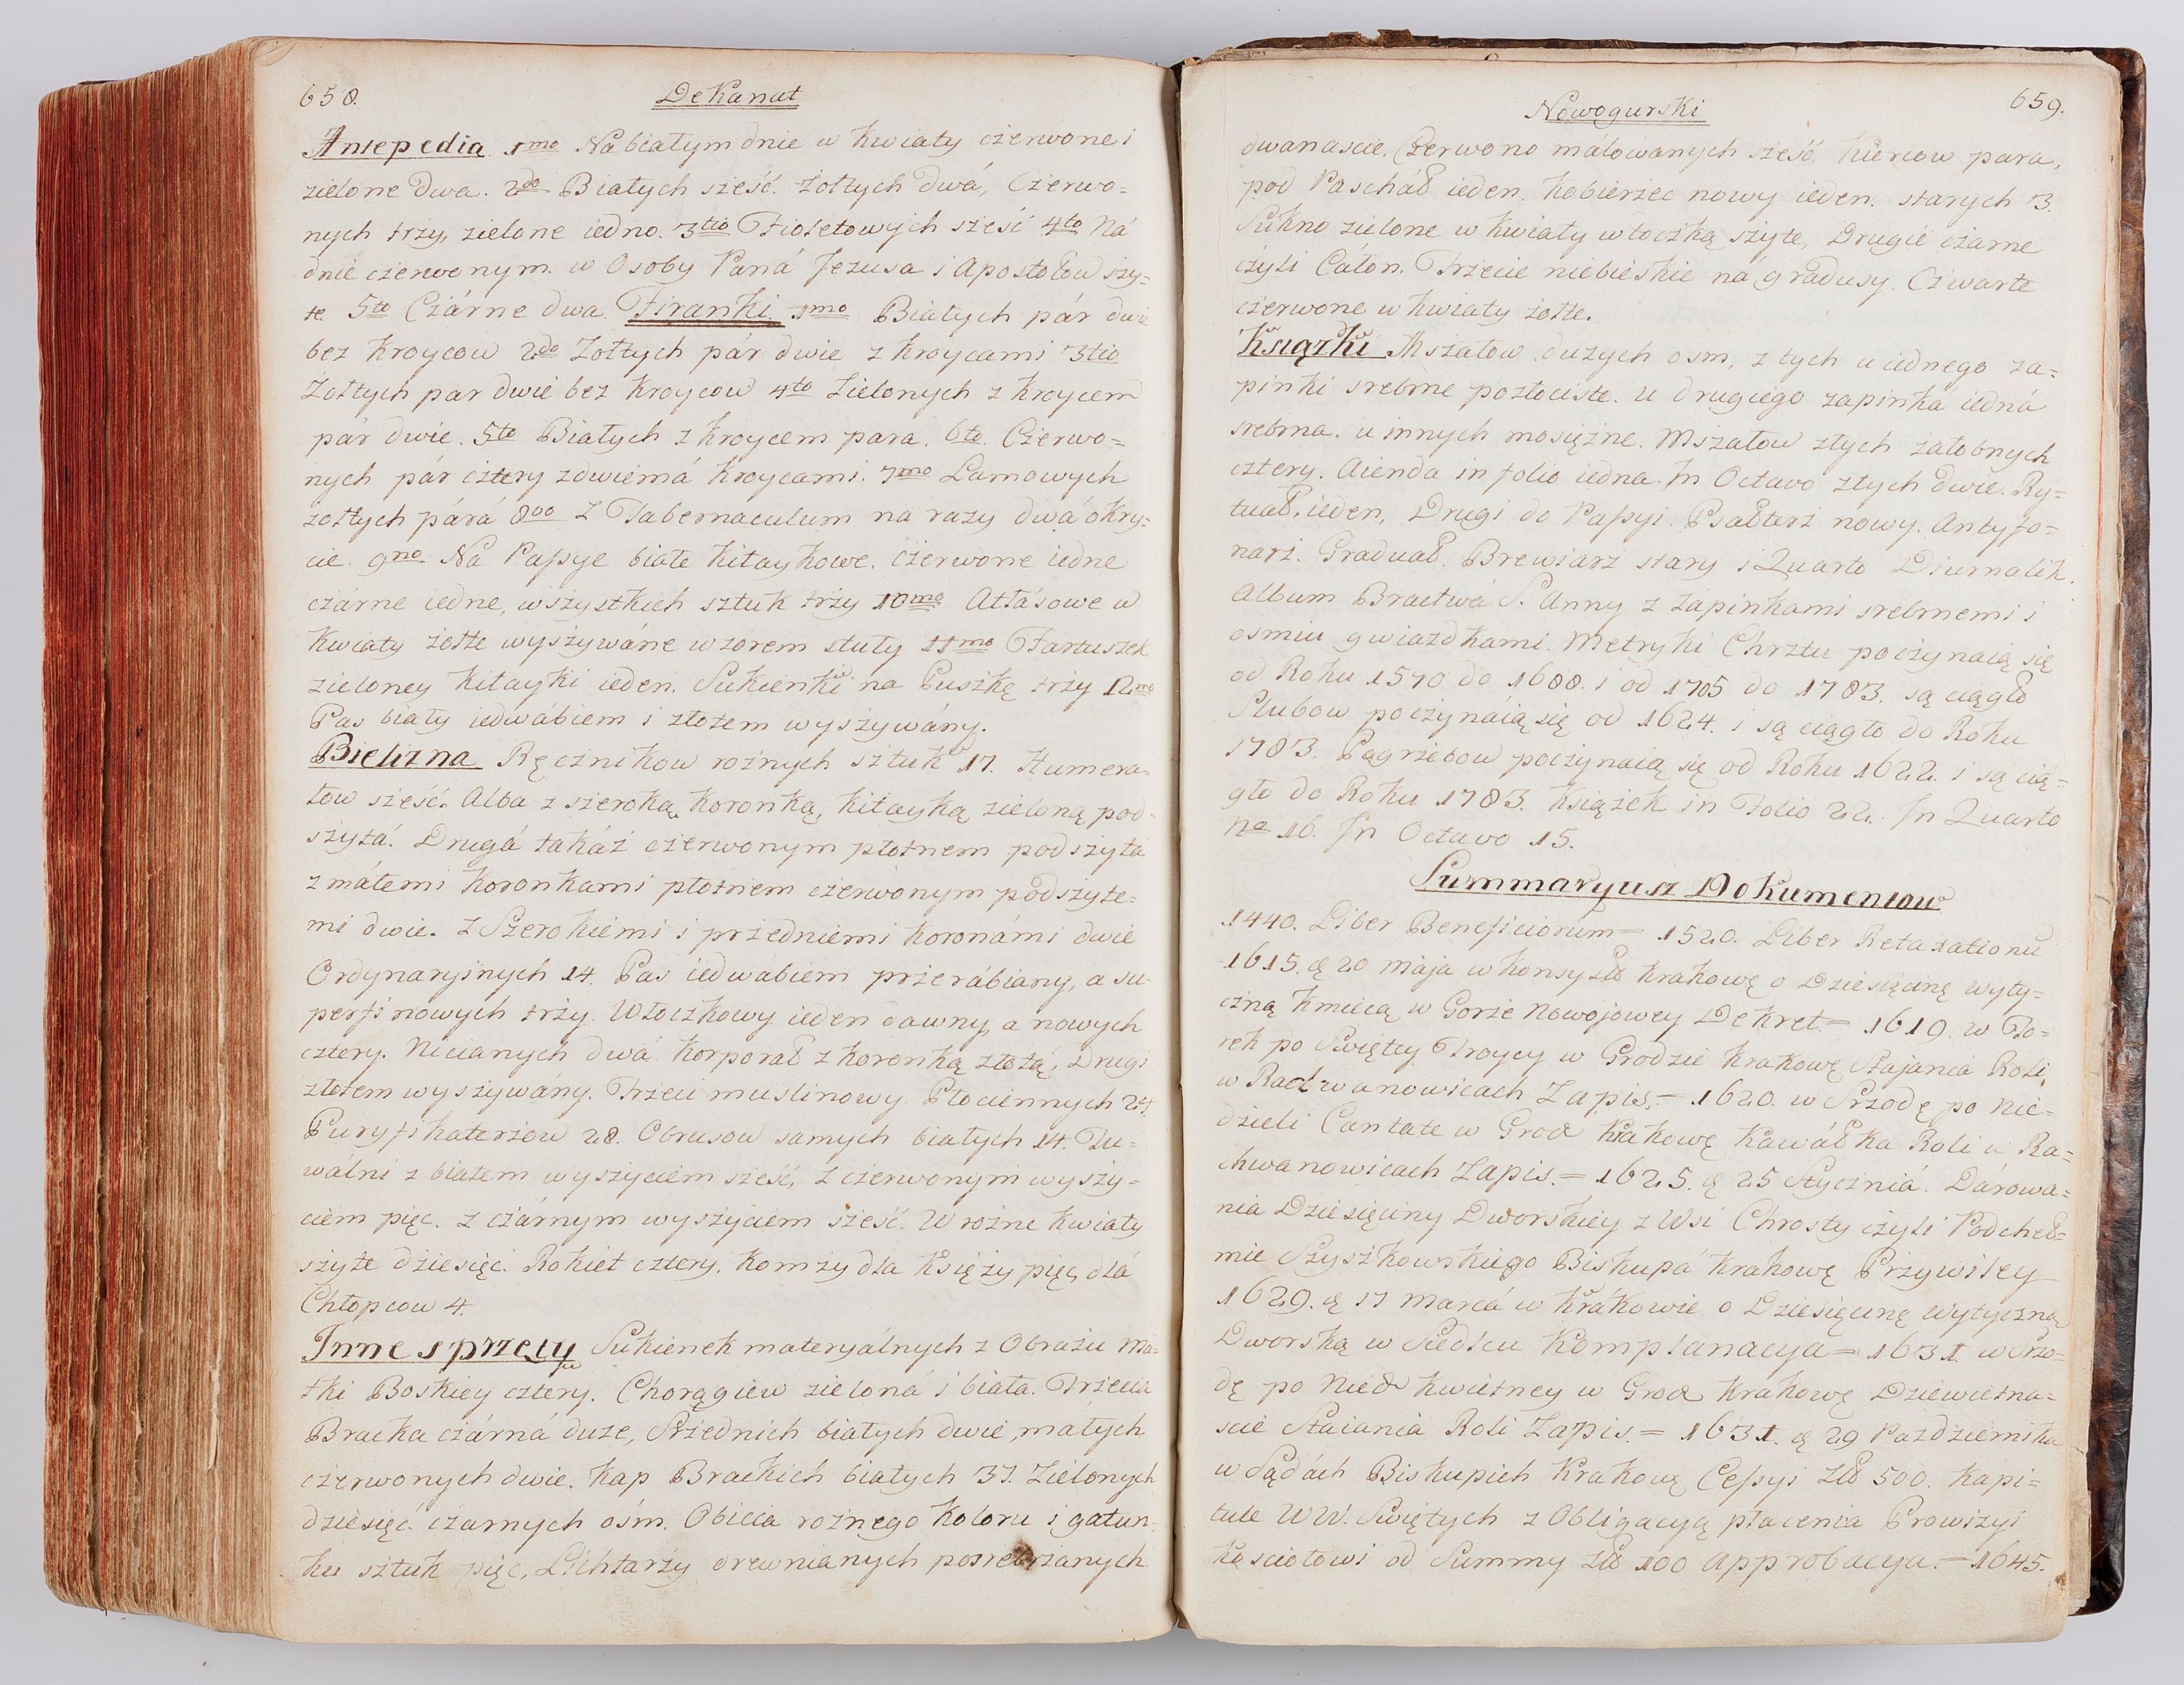 658.
Dekanat
Antepedia 1mo Na białym dnie w kwiaty czerwone i
zielone dwa. 2do Białych sześć. żołtych dwá, Czerwo=
nych trzy, zielone iedno. 3tio Fioletowych sześć 4to Ná
dnie czerwonym w Osoby Paná Jezusa i Apostołow szy=
te 5to Czárne dwa. Firanki 1mo Białych pár dwie
bez kroycow 2do Zołtych pár dwie z kroycami 3tio
Zołtych par dwie bez kroycow 4to Zielonych z kroycem
pár dwie. 5to Białych z kroycem para. 6to. Czerwo=
nych pár cztery z dwiemá kroycami. 7mo Lamowych
żołtych párá 8vo Z Tabernaculum na razy dwá okry=
cie 9no Na Passye białe kitaykowe. czerwone iedne
czárne iedne, wszystkich sztuk trzy 10mo Atłásowe w
kwiaty żołte wyszywáne wzorem stuły 11mo Fartuszek
zieloney kitayki ieden. Sukienki na Puszkę trzy 12mo
Pas biały iedwábiem i złotem wyszywány.
Bielizna Ręcznikow rożnych sztuk 17. Humera=
łow sześć. Alba z szeroką koronką, kitayką zieloną pod=
szytá. Drugá tákáż czerwonym płotnem podszyta
z máłemi koronkami płotnem czerwonym podszyte=
mi dwie. Z Szerokiemi i przedniemi koronámi dwie
Ordynaryinych 14. Pas iedwabiem przerábiany, a su=
perfinowych trzy. Włoczkowy ieden dawny, a nowych
cztery. Nicianych dwá. Korporał z koronką złotą, Drugi
złotem wyszywány. Trzeci muslinowy. Płociennych 24.
Puryfikaterzow 28. Obrusow samych białych 14. Tu=
wálni z białem wyszyciem sześć, z czerwonym wyszy=
ciem pięc. z czárnym wyszyciem sześć. W rożne kwiaty
szyte dziesięć. Rokiet cztery. Komży dla Księży pięc, dlá
Chłopcow 4.
Inne sprzęty Sukienek materyálnych z Obrazu Ma=
tki Boskiey cztery. Chorągiew zieloná i biała. Trzecia
Bracka czárná duże, Srzednich białych dwie, małych
czerwonych dwie. Kap Brackich białych 31. Zielonych
dziesięć. czarnych ośm. Obicia rożnego koloru i gatun=
ku sztuk pięc, Lichtarzy drewnianych posrebrzanych
659.
Nowogurski
dwanascie. Czerwono malowanych sześć, Kiercow para,
pod Paschał ieden. Kobierzec nowy ieden. starych 3.
Sukno zielone w kwiaty włoczką szyte, Drugie czarne
czyli Całon. Trzecie niebieskie ná gradusy. Czwarte
czerwone w kwiaty żołte.
Książki Mszałow dużych osm, z tych u iednego za=
pinki srebrne pozłociste. u drugiego zapinká iedná
srebrna. u innych mosiężne. Mszałow złych żałobnych
cztery. Aienda in folio iedna. In Octavo złych dwie. Ry=
tuał, ieden, Drugi do Passyi. Psałterz nowy. Antyfo=
narz. Graduał. Brewiarz stary i Quarto Diurnalik.
Album Bractwá S. Anny z zapinkami srebrnemi i
osmiu gwiazdkami. Metryki Chrztu poczynaią się
od Roku 1570 do 1688. i od 1705 do 1783. są ciągło
Slubow poczynáią się od 1624. i są ciągło do Roku
1783. Pogrzebow poczynaią się od Roku 1622. i są cią=
gło do Roku 1783. Książek in Folio 22. In Quarto
No 16. In Octavo 15.
Summaryusz Dokumentow
1440. Liber Beneficiorum = 1520. Liber Retaxationu
1615. d 20 Maja w Konsysł Krakowę o Dziesięcinę wyty=
czną Kmiecą w Gorze Nowojowey Dekret. = 1619. w Wto=
rek po Swiętey Troycy w Grodzie Krakowę Stajania Roli
w Radwanowicach Zapis. = 1620. w Srzodę po Nie=
dzieli Cantate w Grod Krakowę Kawáłka Roli w Ra=
chwanowicach Zapis. = 1625. d 25 Stycznia. Dárowa=
nia Dziesięciny Dworskiey z Wsi Chrosty czyli Podcheł=
mie Szyszkowskiego Biskupá Krakowę Przywiley
1629. d 17 Marcá w Krákowie o Dziesięcinę wytyczną
Dworską w Siedlcu Komplanacya = 1631 w Srzo=
dę po Nied Kwietney w Grod Krakowę Dziewietna=
scie Staiania Roli Zapis. = 1631. d 29 Pazdziernika
w Sądách Biskupich Krakowę Cessyi Zł 500. Kapi=
tule WW. Swiętych z Obligacyą płacenia Prowizyi
Kościołowi od Summy Zł 100 Approbacya. = 1645.